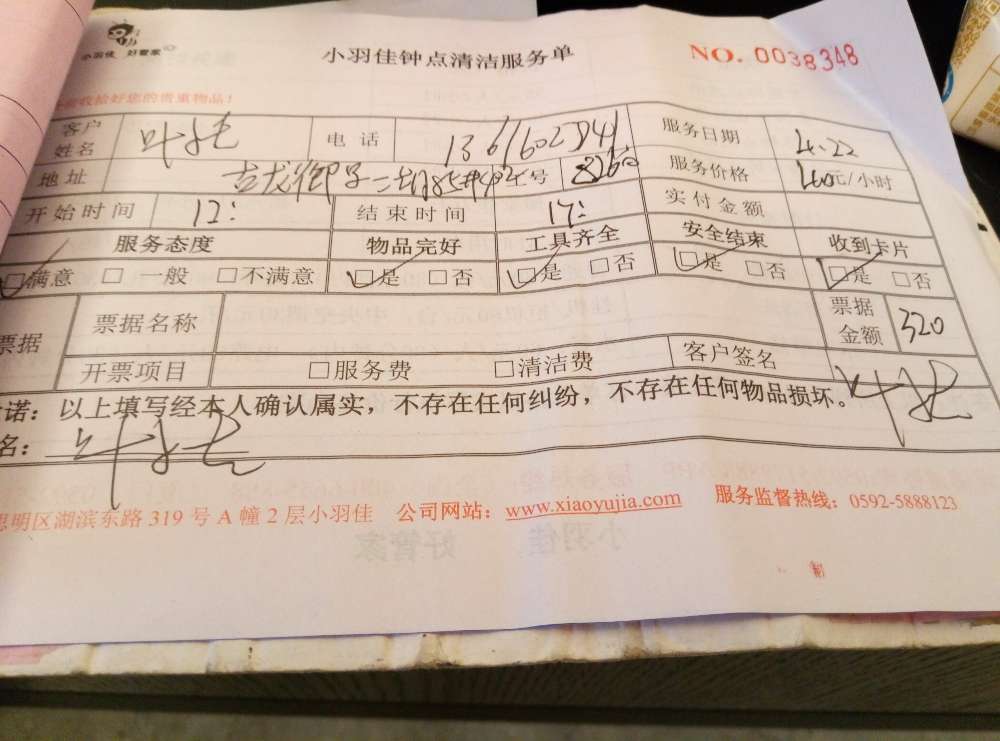 小羽佳 好管家
小羽佳钟点清洁服务单
NO. 0038348
收拾好您的贵重物品！
客户姓名 叶 电话 服务日期 4.22
地址 号 服务价格 元/小时
开始时间 12: 结束时间 17: 实付金额
服务态度 物品完好 工具齐全 安全结束 收到卡片
☑满意 □ 一般 □不满意 ☑是 □否 ☑是 □否 ☑是 □否 ☑是 □否
票据 票据名称 票据金额 320
开票项目 □服务费 □清洁费 客户签名 叶
诺：以上填写经本人确认属实，不存在任何纠纷，不存在任何物品损坏。
名： 叶
思明区湖滨东路 319 号 A 幢 2 层小羽佳 公司网站：www.xiaoyujia.com 服务监督热线：0592-5888123